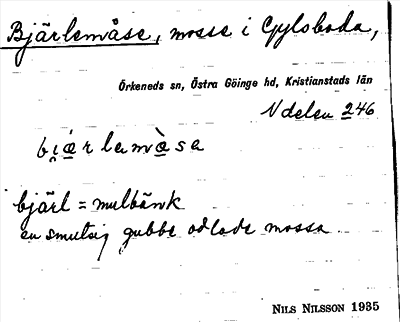 Bjärlemåse, mosse i Gylsboda,
Örkeneds sn, Östra Göinge hd, Kristianstads län
N delen 246
bi̯ä̱rlemå̱̀sa
bjärl = mulbänk
en smutsig gubbe odlade mossa
NILS NILSSON 1935